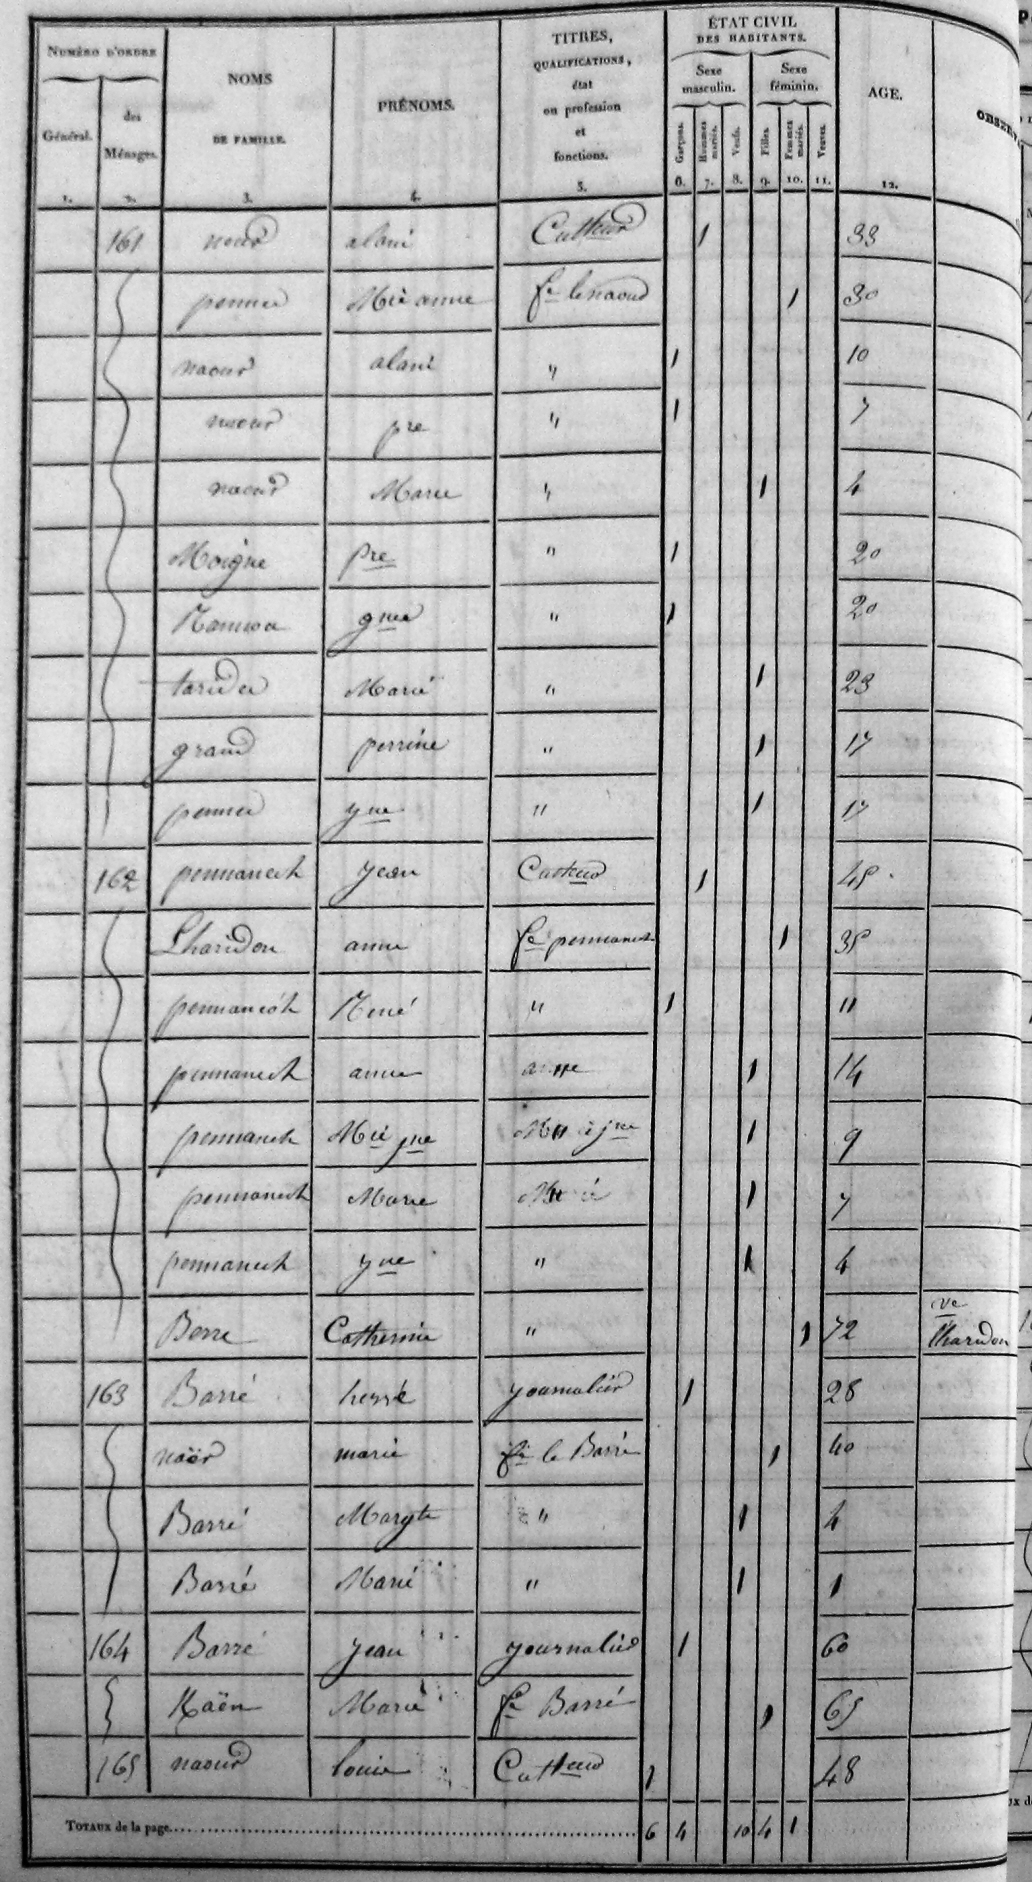 NUMÉRO D'ORDRE
Général.
des Ménages.
NOMS DE FAMILLE.
PRÉNOMS.
TITRES, QUALIFICATIONS, état ou profession et fonctions.
ÉTAT CIVIL DES HABITANTS.
Sexe masculin.
Sexe féminin.
Garçons.
Hommes mariés.
Veufs.
Filles.
Femmes mariés.
Veuves.
AGE.
1. 2. 3. 4. 5. 6. 7. 8. 9. 10. 11. 12.
161 alain Culteur 1 33
penner Mie anne fe le naour 1 30
naour alain " 1 10
naour pre " 1 7
naour Marie " 1 4
Moigne pre " 1 20
" 1 20
Marie " 1 23
grand perrine " 1 17
penner yne " 1 17
162 pennanech jean Culteur 1 45
Lharidon anne fe pennanech 1 35
pennanech René " 1 11
pennanech anne " 1 14
pennanech Mie jne " 1 9
pennanech Marie " 1 7
pennanech yne " 1 4
Berre Catherine " 1 72 ve lharidon
163 Barré hervé journalier 1 28
naör marie fe le Barré 1 40
Barré Margte " 1 4
Barré Marie " 1 1
164 Barré jean journalier 1 60
Marie fe Barré 1 65
165 naour louis Culteur 1 48
TOTAUX de la page 6 4 10 4 1